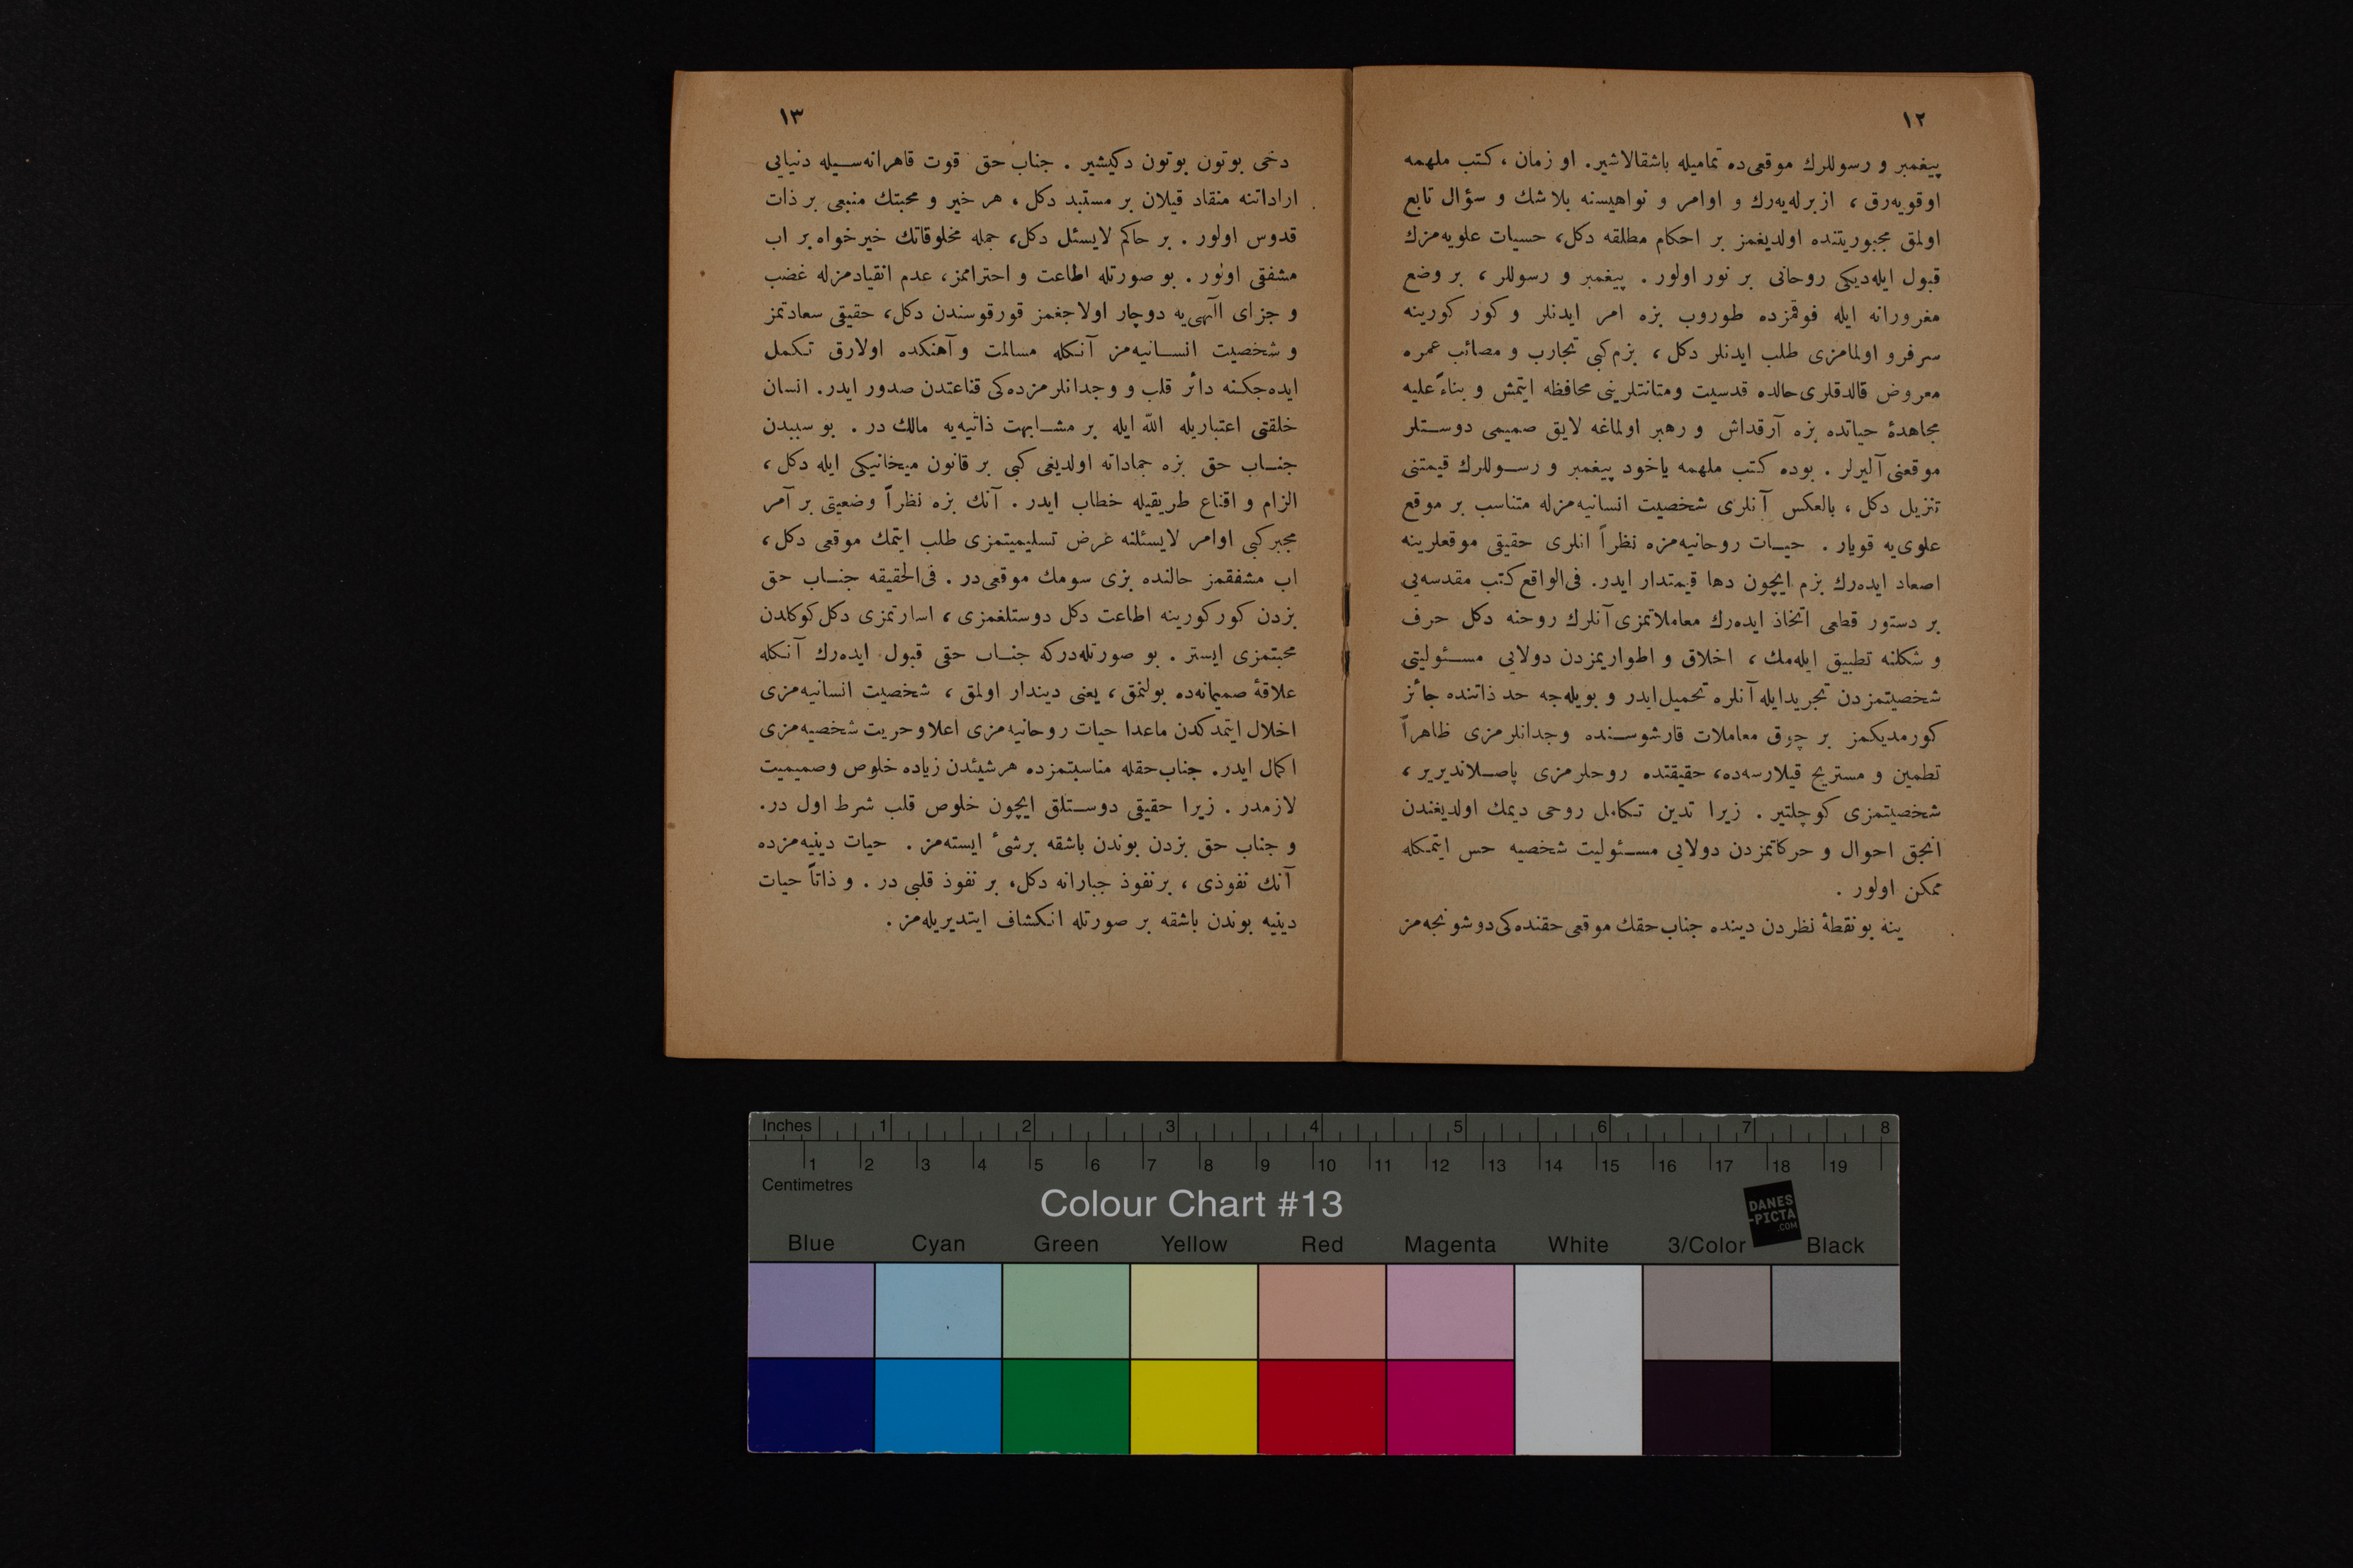 ١٢
پیغمبر و رسوللرك موقعی‌ده تمامیله باشقالاشیر. او زمان ، كتب ملهمه
اوقویه‌رق ، ازبرله‌یه‌رك و اوامر و نواهیسنه بلا شك و سؤال تابع
اولمق مجبوریتنده اولدیغمز بر احكام مطلقه دكل، حسیات علویه‌مزك
قبول ایله‌دیكی روحانی بر نور اولور . پیغمبر و رسوللر ، بر وضع
مغرورانه ایله فوقمزده طوروب بزه امر ایدنلر و كور كورینه
سرفرو اولمامزی طلب ایدنلر دكل ، بزم كبی تجارب و مصائب عمره
معروض قالدقلری حالده قدسیت ومتانتلرینی محافظه ایتمش و بناءً علیه
مجاهدهٔ حیاتده بزه آرقداش و رهبر اولماغه لایق صمیمی دوستلر
موقعنی آلیرلر . بوده كتب ملهمه یاخود پیغمبر و رسوللرك قیمتنی
تنزیل دكل ، بالعكس آنلری شخصیت انسانیه‌مزله متناسب بر موقع
علوی‌یه قویار . حیات روحانیه‌مزه نظراً انلری حقیقی موقعلرینه
اصعاد ایده‌رك بزم ایچون دها قیمتدار ایدر. فی‌الواقع كتب مقدسه‌یی
بر دستور قطعی اتخاذ ایده‌رك معاملاتمزی آنلرك روحنه دكل حرف
و شكلنه تطبیق ایله‌مك ، اخلاق و اطواریمزدن دولایی مسئولیتی
شخصیتمزدن تجریدایله آنلره تحمیل‌ایدر و بویله‌جه حد ذاتنده جائز
كورمدیكمز بر چوق معاملات قارشوسنده وجدانلرمزی ظاهراً
تطمین و مستریح قیلارسه‌ده، حقیقتده روحلرمزی پاصلاندیریر ،
شخصیتمزی كوچلتیر . زیرا تدین تكامل روحی دیمك اولدیغندن
انجق احوال و حركاتمزدن دولایی مسئولیت شخصیه حس ایتمكله
ممكن اولور .
ینه بونقطهٔ نظردن دینده جناب حقك موقعی حقنده‌كی دوشونجه‌مز
١٣
دخی بوتون بوتون دكیشیر . جناب حق قوت قاهرانه‌سیله دنیایی
اراداتنه منقاد قیلان بر مستبد دكل ، هر خیر و محبتك منبعی بر ذات
قدوس اولور . بر حاكم لایسئل دكل، جمله مخلوقاتك خیرخواه بر اب
مشفقی اولور . بو صورتله اطاعت و احتراممز، عدم انقیادمزله غضب
و جزای الٓهی‌یه دوچار اولاجغمز قورقوسندن دكل، حقیقی سعادتمز
و شخصیت انسانیه‌مز آنكله مسالمت و آهنكده اولارق تكمل
ایده‌جكنه دائر قلب و وجدانلرمزده‌كی قناعتدن صدور ایدر. انسان
خلقتی اعتباریله الله ایله بر مشابهت ذاتیه‌یه مالك در . بو سببدن
جناب حق بزه جماداته اولدیغی كبی بر قانون میخانیكی ایله دكل ،
الزام و اقناع طریقیله خطاب ایدر . آنك بزه نظراً وضعیتی بر آمر
مجبركبی اوامر لایسئلنه عرض تسلیمیتمزی طلب ایتمك موقعی دكل ،
اب مشفقمز حالنده بزی سومك موقعی‌در . فی‌الحقیقه جناب حق
بزدن كوركورینه اطاعت دكل دوستلغمزی ، اسارتمزی دكل كوكلدن
محبتمزی ایستر . بو صورتله‌دركه جناب حقی قبول ایده‌رك آنكله
علاقهٔ صمیمانه‌ده بولنمق ، یعنی دیندار اولمق ، شخصیت انسانیه‌مزی
اخلال ایتمدكدن ماعدا حیات روحانیه‌مزی اعلا وحریت شخصیه‌مزی
اكمال ایدر. جناب حقله مناسبتمزده هرشیئدن زیاده خلوص وصمیمیت
لازمدر . زیرا حقیقی دوستلق ایچون خلوص قلب شرط اول در.
و جناب حق بزدن بوندن باشقه برشیٔ ایسته‌مز . حیات دینیه‌مزده
آنك نفوذی ، برنفوذ جبارانه دكل، بر نفوذ قلبی در . و ذاتاً حیات
دینیه بوندن باشقه بر صورتله انكشاف ایتدیریله‌مز .
Inches 1 2 3 4 5 6 7 8
1 2 3 4 5 6 7 8 9 10 11 12 13 14 15 16 17 18 19
Centimetres
Colour Chart #13
DANES
-PICTA
.COM
Blue Cyan Green Yellow Red Magenta White 3/Color Black